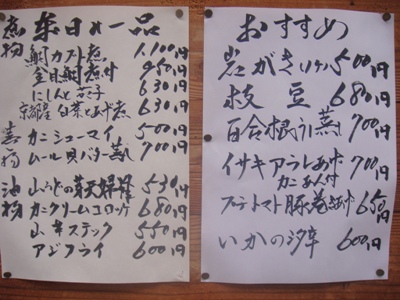 本日の一品
煮物
鯛カブト煮 1,100円
金目鯛煮付 950円
にしんと茄子 630円
京都産白菜とあげ煮 630円
蒸物
カニシューマイ 500円
ムール貝バター蒸し 700円
油物
山うどの芽天婦羅 530円
カニクリームコロッケ 680円
山芋ステック 550円
アジフライ 600円
おすすめ
岩がき(1ケ) 500円
枝豆 680円
百合根 蒸し 700円
イサキアラレあげ 700円
カニあん付
プチトマト豚巻きあげ 650円
いかの沖 600円